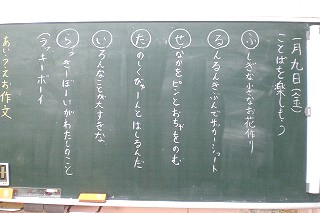 一月九日(金)
ことばを楽しもう
ふしぎな小さなお花作り
るんるんきぶんでサッカーシュート
せなかをピンとおちゃをのむ
たのしくびゅーんとはしるんだ
いろんなことが大すきな
らっきーぼーいがわたしのこと
ラッキーボーイ
あいうえお作文